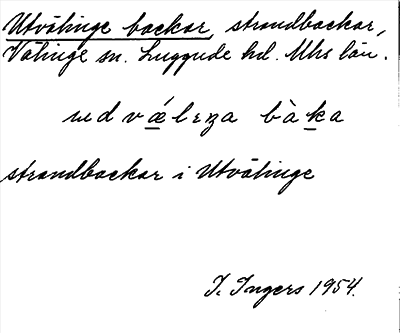 Utvälinge backar, strandbackar,
Välinge sn. Luggude hd. Mhs län.
ud vǽ̱lɛŋa bàḵa
strandbackar i Utvälinge
I. Ingers 1954.